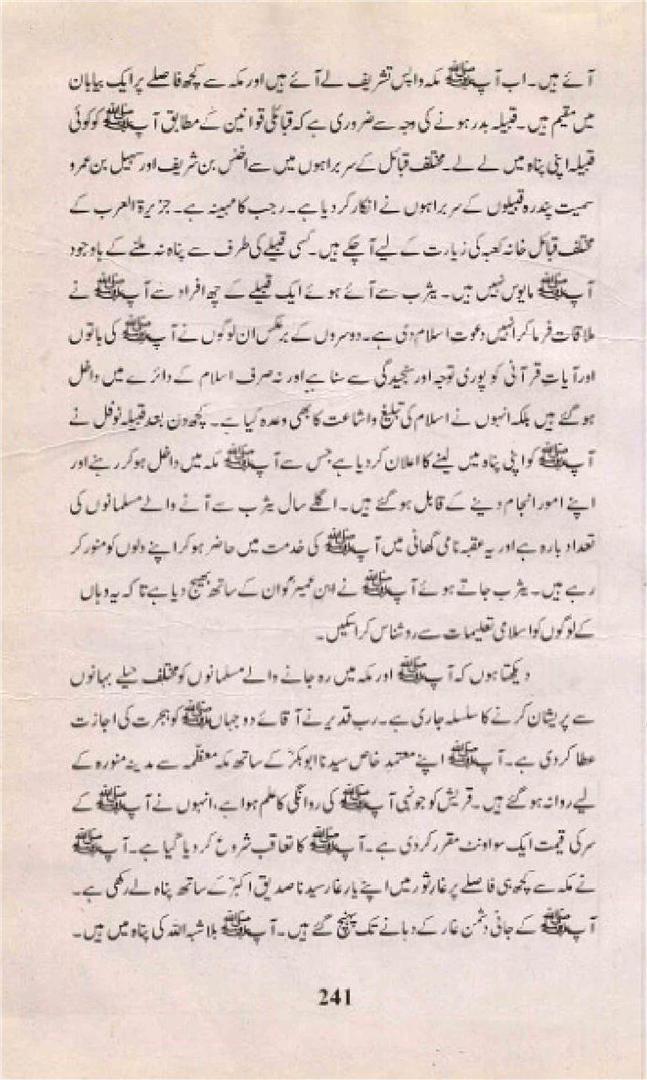 آئے ہیں۔ اب آپ ﷺ مکہ واپس تشریف لے آئے ہیں اور مکہ سے کچھ فاصلے پر ایک بیابان
میں مقیم ہیں۔ قبیلہ بدر ہونے کی وجہ سے ضروری ہے کہ قبائلی قوانین کے مطابق آپ ﷺ کو کوئی
قبیلہ اپنی پناہ میں لے لے۔ مختلف قبائل کے سربراہوں میں سے اخنس بن شریف اور سہیل بن عمرو
سمیت پندرہ قبیلوں کے سربراہوں نے انکار کر دیا ہے۔ رجب کا مہینہ ہے۔ جزیرۃ العرب کے
مختلف قبائل خانہ کعبہ کی زیارت کے لیے آ چکے ہیں۔ کسی قبیلے کی طرف سے پناہ نہ ملنے کے باوجود
آپ ﷺ مایوس نہیں ہیں۔ یثرب سے آئے ہوئے ایک قبیلے کے چھ افراد سے آپ ﷺ نے
ملاقات فرما کر انہیں دعوت اسلام دی ہے۔ دوسروں کے برعکس ان لوگوں نے آپ ﷺ کی باتوں
اور آیات قرآنی کو پوری توجہ اور سنجیدگی سے سنا ہے اور نہ صرف اسلام کے دائرے میں داخل
ہو گئے ہیں بلکہ انہوں نے اسلام کی تبلیغ و اشاعت کا بھی وعدہ کیا ہے۔ کچھ دن بعد قبیلہ نوفل نے
آپ ﷺ کو اپنی پناہ میں لینے کا اعلان کر دیا ہے جس سے آپ ﷺ مکہ میں داخل ہو کر رہنے اور
اپنے امور انجام دینے کے قابل ہو گئے ہیں۔ اگلے سال یثرب سے آنے والے مسلمانوں کی
تعداد بارہ ہے اور یہ عقبہ نامی گھاٹی میں آپ ﷺ کی خدمت میں حاضر ہو کر اپنے دلوں کو منور کر
رہے ہیں۔ یثرب جاتے ہوئے آپ ﷺ نے ابن عمیرؓ کو ان کے ساتھ بھیج دیا ہے تاکہ یہ وہاں
کے لوگوں کو اسلامی تعلیمات سے روشناس کرا سکیں۔
دیکھتا ہوں کہ آپ ﷺ اور مکہ میں رہ جانے والے مسلمانوں کو مختلف حیلے بہانوں
سے پریشان کرنے کا سلسلہ جاری ہے۔ رب قدیر نے آقائے دو جہاں ﷺ کو ہجرت کی اجازت
عطا کر دی ہے۔ آپ ﷺ اپنے معتمد خاص سیدنا ابوبکرؓ کے ساتھ مکہ معظمہ سے مدینہ منورہ کے
لیے روانہ ہو گئے ہیں۔ قریش کو جونہی آپ ﷺ کی روانگی کا علم ہوا ہے، انہوں نے آپ ﷺ کے
سر کی قیمت ایک سو اونٹ مقرر کر دی ہے۔ آپ ﷺ کا تعاقب شروع کر دیا گیا ہے۔ آپ ﷺ
نے مکہ سے کچھ ہی فاصلے پر غار ثور میں اپنے یار غار سیدنا صدیق اکبرؓ کے ساتھ پناہ لے رکھی ہے۔
آپ ﷺ کے جانی دشمن غار کے دہانے تک پہنچ گئے ہیں۔ آپ ﷺ بلاشبہ اللہ کی پناہ میں ہیں۔
241